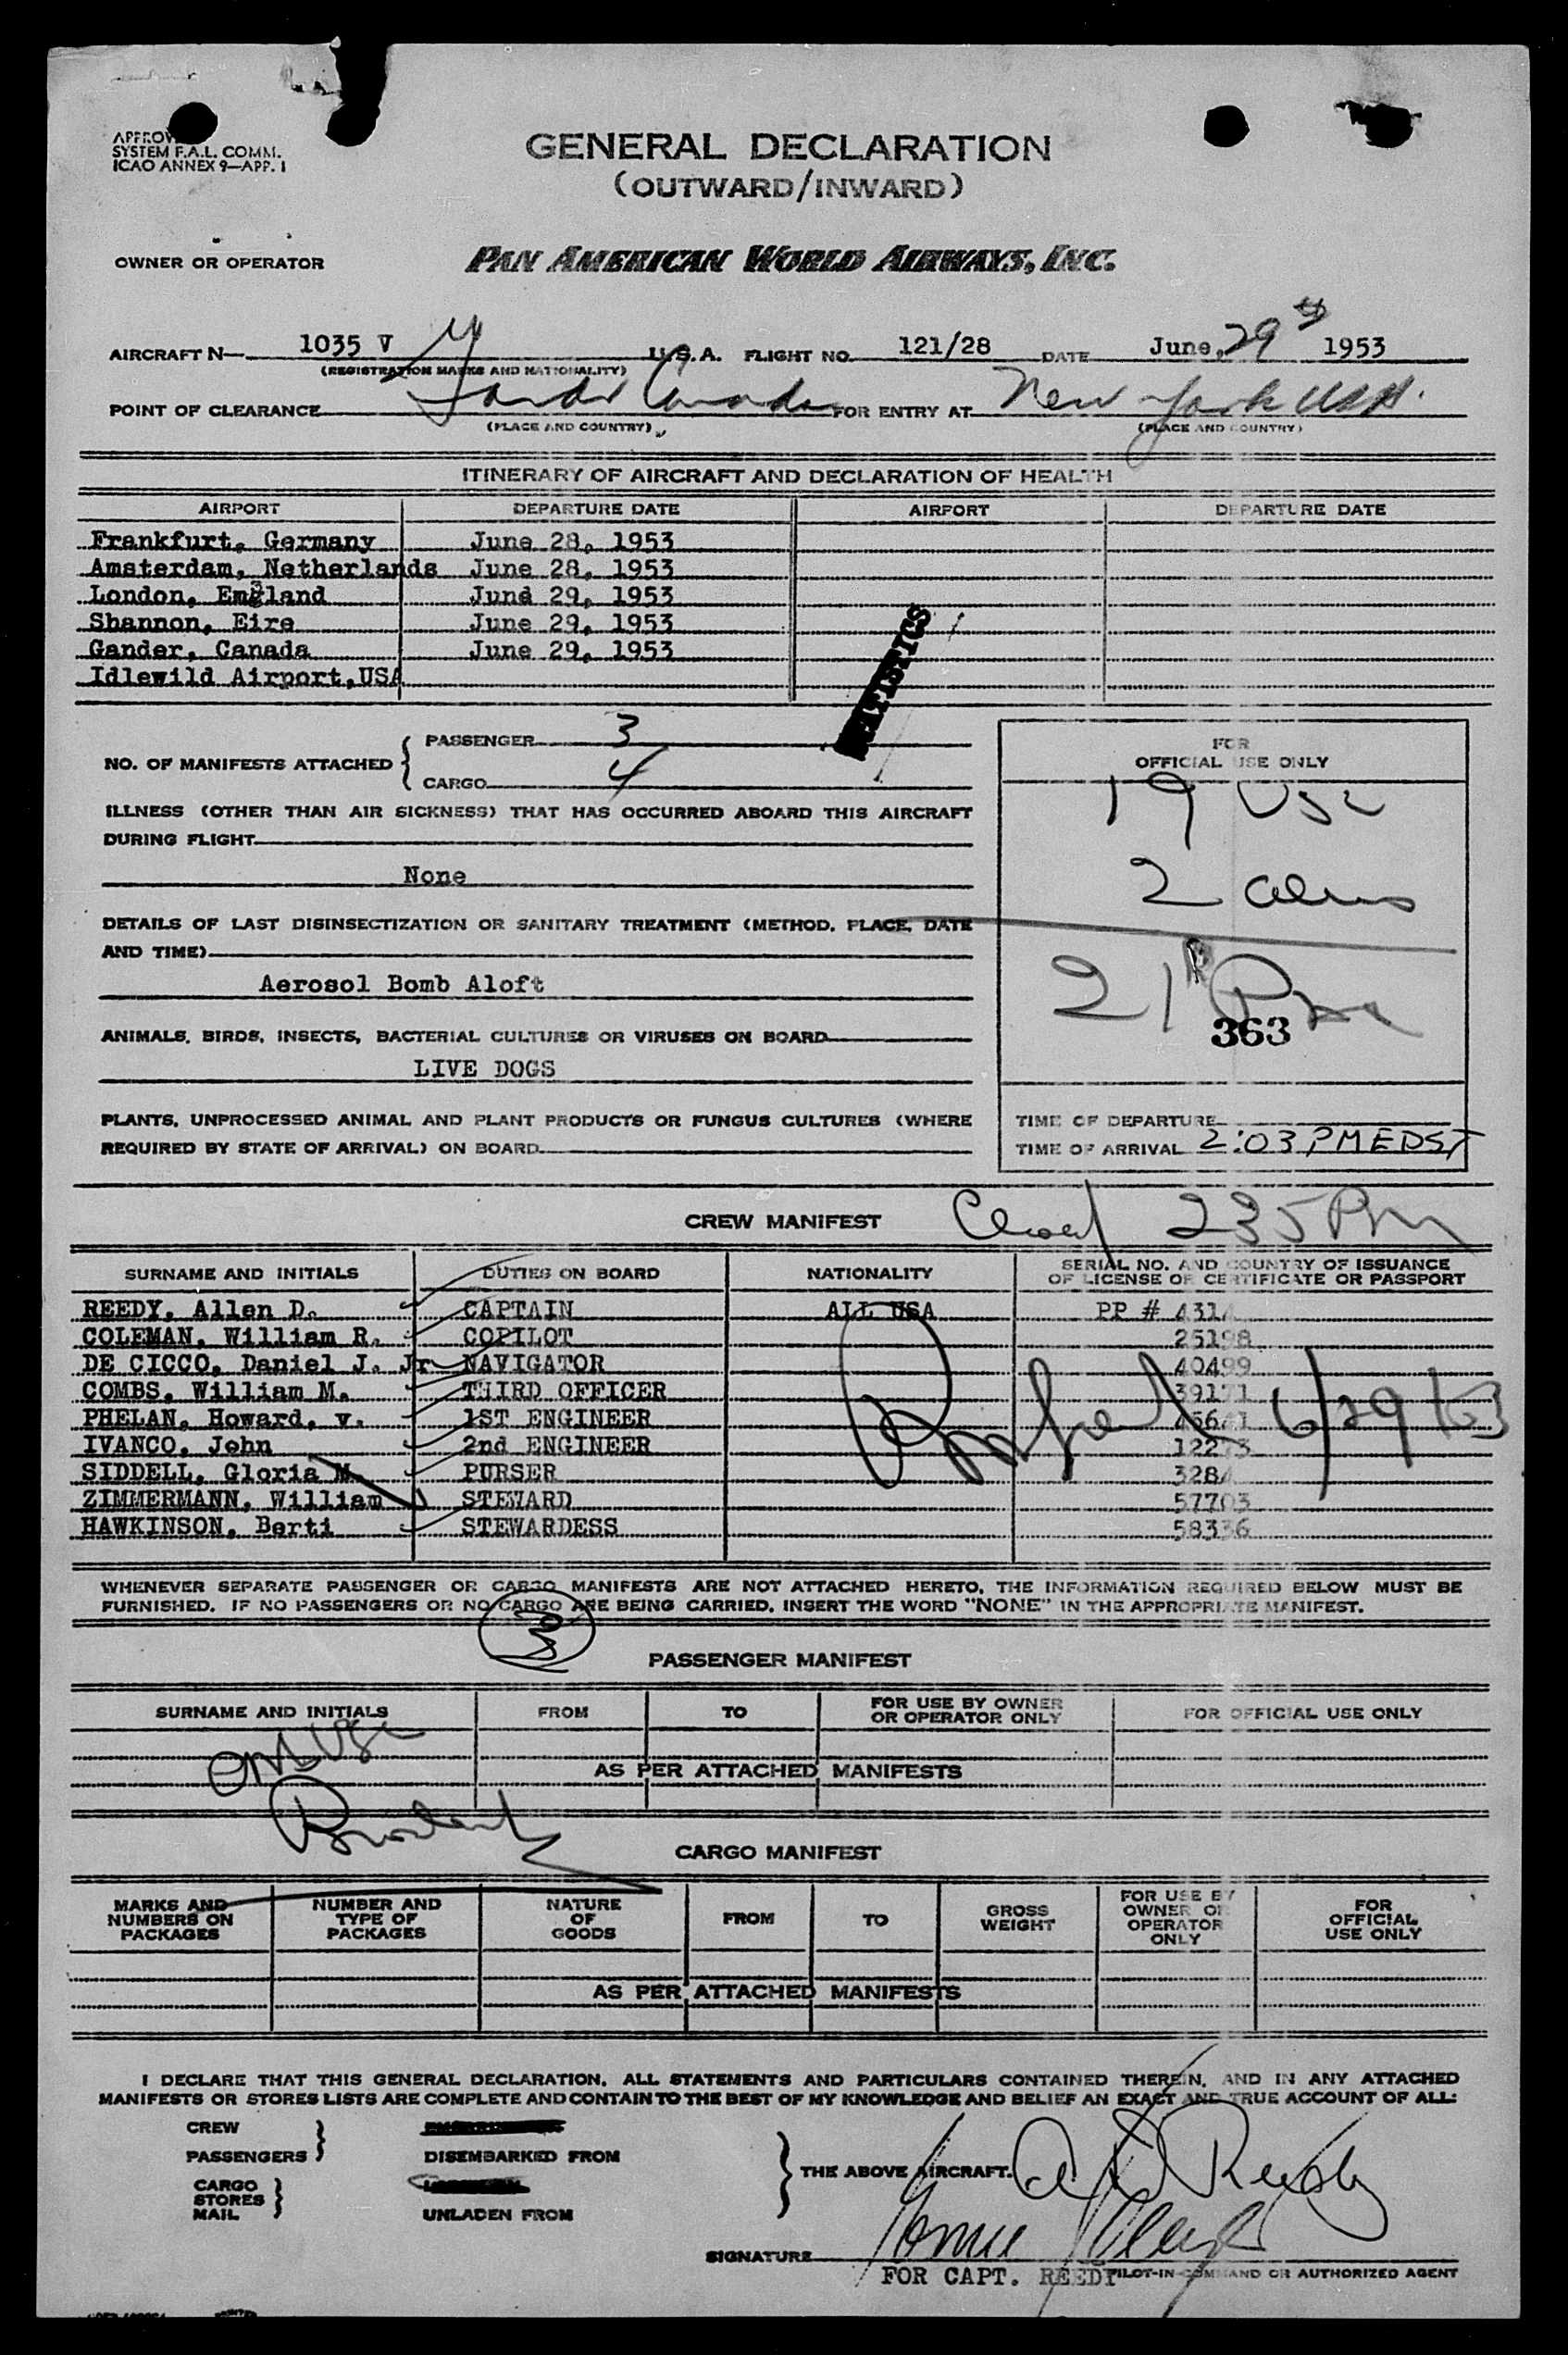 SYSTEM F.A.L. COMM.
ICAO ANNEX 9—APP. 1
GENERAL DECLARATION
(OUTWARD/INWARD)
OWNER OR OPERATOR
PAN AMERICAN WORLD AIRWAYS, INC.
AIRCRAFT N— 1035 V U.S.A. FLIGHT NO. 121/28 DATE June, 29th 1953
(REGISTRATION MARKS AND NATIONALITY)
POINT OF CLEARANCE Canada FOR ENTRY AT New York USA.
(PLACE AND COUNTRY) (PLACE AND COUNTRY)
ITINERARY OF AIRCRAFT AND DECLARATION OF HEALTH
AIRPORT DEPARTURE DATE AIRPORT DEPARTURE DATE
Frankfurt, Germany June 28, 1953
Amsterdam, Netherlands June 28, 1953
London, England June 29, 1953
Shannon, Eire June 29, 1953
Gander, Canada June 29, 1953
Idlewild Airport,USA
STATISTICS
NO. OF MANIFESTS ATTACHED
PASSENGER 3
CARGO 4
ILLNESS (OTHER THAN AIR SICKNESS) THAT HAS OCCURRED ABOARD THIS AIRCRAFT
DURING FLIGHT
None
DETAILS OF LAST DISINSECTIZATION OR SANITARY TREATMENT (METHOD, PLACE, DATE
AND TIME)
Aerosol Bomb Aloft
ANIMALS, BIRDS, INSECTS, BACTERIAL CULTURES OR VIRUSES ON BOARD
LIVE DOGS
PLANTS, UNPROCESSED ANIMAL AND PLANT PRODUCTS OR FUNGUS CULTURES (WHERE
REQUIRED BY STATE OF ARRIVAL) ON BOARD
FOR
OFFICIAL USE ONLY
19 USC
2 aliens
21
363
TIME OF DEPARTURE
TIME OF ARRIVAL 2:03 PM EDST
CREW MANIFEST 235 PM
SURNAME AND INITIALS DUTIES ON BOARD NATIONALITY SERIAL NO. AND COUNTRY OF ISSUANCE
OF LICENSE OR CERTIFICATE OR PASSPORT
REEDY, Allen D. CAPTAIN ALL USA PP #
COLEMAN, William R. COPILOT 25198
DE CICCO, Daniel J. Jr NAVIGATOR 40499
COMBS, William M. THIRD OFFICER 39171
PHELAN, Howard, v. 1ST ENGINEER
IVANCO, John 2nd ENGINEER
SIDDELL, Gloria M. PURSER
ZIMMERMANN, William STEWARD 57703
HAWKINSON, Berti STEWARDESS 58336
6/29/53
WHENEVER SEPARATE PASSENGER OR CARGO MANIFESTS ARE NOT ATTACHED HERETO, THE INFORMATION REQUIRED BELOW MUST BE
FURNISHED. IF NO PASSENGERS OR NO CARGO ARE BEING CARRIED, INSERT THE WORD "NONE" IN THE APPROPRIATE MANIFEST.
3
PASSENGER MANIFEST
SURNAME AND INITIALS FROM TO FOR USE BY OWNER
OR OPERATOR ONLY FOR OFFICIAL USE ONLY
AS PER ATTACHED MANIFESTS
CARGO MANIFEST
MARKS AND
NUMBERS ON
PACKAGES
NUMBER AND
TYPE OF
PACKAGES
NATURE
OF
GOODS
FROM
TO
GROSS
WEIGHT
FOR USE BY
OWNER OR
OPERATOR
ONLY
FOR
OFFICIAL
USE ONLY
AS PER ATTACHED MANIFESTS
I DECLARE THAT THIS GENERAL DECLARATION, ALL STATEMENTS AND PARTICULARS CONTAINED THEREIN, AND IN ANY ATTACHED
MANIFESTS OR STORES LISTS ARE COMPLETE AND CONTAIN TO THE BEST OF MY KNOWLEDGE AND BELIEF AN EXACT AND TRUE ACCOUNT OF ALL:
CREW
PASSENGERS DISEMBARKED FROM
CARGO
STORES
MAIL UNLADEN FROM
THE ABOVE AIRCRAFT. A D Reedy
SIGNATURE
FOR CAPT. REEDY PILOT-IN-COMMAND OR AUTHORIZED AGENT